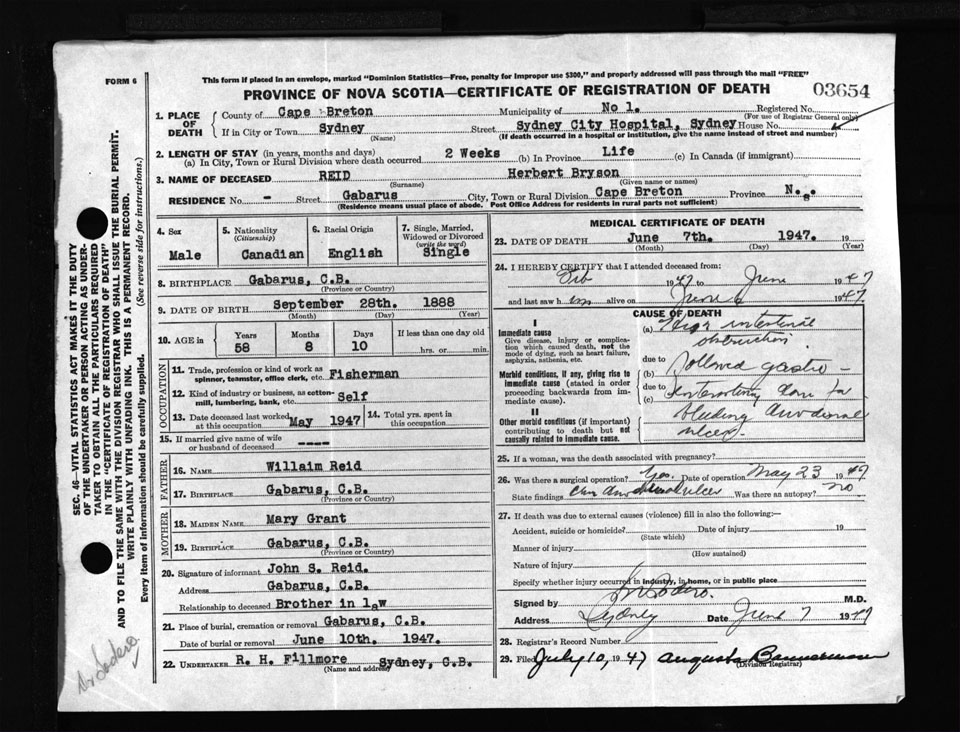 FORM 6
This form if placed in an envelope, marked "Dominion Statistics—Free, penalty for improper use $300," and properly addressed will pass through the mail "FREE"
PROVINCE OF NOVA SCOTIA—CERTIFICATE OF REGISTRATION OF DEATH
03654
1. PLACE OF DEATH
County of Cape Breton Municipality of No 1. Registered No.
(For use of Registrar General only)
If in City or Town Sydney Street Sydney City Hospital, Sydney House No.
(Name) (If death occurred in a hospital or institution, give the name instead of street and number)
2. LENGTH OF STAY (in years, months and days)
(a) In City, Town or Rural Division where death occurred 2 Weeks (b) In Province Life (c) In Canada (if immigrant)
3. NAME OF DECEASED REID Herbert Bryson
(Surname) (Given name or names)
RESIDENCE No. - Street Gabarus City, Town or Rural Division Cape Breton Province N.S.
(Residence means usual place of abode. Post Office Address for residents in rural parts not sufficient)
4. Sex
Male
5. Nationality
(Citizenship)
Canadian
6. Racial Origin
English
7. Single, Married, Widowed or Divorced
(write the word)
Single
8. BIRTHPLACE Gabarus, C.B.
(Province or Country)
9. DATE OF BIRTH September 28th. 1888
(Month) (Day) (Year)
10. AGE in
Years Months Days If less than one day old
58 8 10 hrs. or min.
OCCUPATION
11. Trade, profession or kind of work as spinner, teamster, office clerk, etc. Fisherman
12. Kind of industry or business, as cotton-mill, lumbering, bank, etc. Self
13. Date deceased last worked at this occupation May 1947
14. Total yrs. spent in this occupation
15. If married give name of wife or husband of deceased ----
FATHER
16. NAME Willaim Reid
17. BIRTHPLACE Gabarus, C.B.
(Province or Country)
MOTHER
18. MAIDEN NAME Mary Grant
19. BIRTHPLACE Gabarus, C.B.
(Province or Country)
20. Signature of informant John S. Reid.
Address Gabarus, C.B.
Relationship to deceased Brother in law
21. Place of burial, cremation or removal Gabarus, C.B.
Date of burial or removal June 10th. 1947.
22. UNDERTAKER R. H. Fillmore Sydney, C.B.
(Name and address)
MEDICAL CERTIFICATE OF DEATH
23. DATE OF DEATH June 7th. 1947. 19
(Month) (Day) (Year)
24. I HEREBY CERTIFY that I attended deceased from:
Feb 1947 to June 1947
and last saw him alive on June 6 1947
CAUSE OF DEATH
I
Immediate cause
Give disease, injury or complication which caused death, not the mode of dying, such as heart failure, asphyxia, asthenia, etc.
Morbid conditions, if any, giving rise to immediate cause (stated in order proceeding backwards from immediate cause).
II
Other morbid conditions (if important) contributing to death but not causally related to immediate cause.
(a) High intestinal
obstruction
due to
(b) followed gastro-
due to
(c) enterostomy done for
bleeding duodenal
ulcer.
25. If a woman, was the death associated with pregnancy?
26. Was there a surgical operation? Yes. Date of operation May 23 1947
State findings Chr duodenal ulcer Was there an autopsy? no
27. If death was due to external causes (violence) fill in also the following:—
Accident, suicide or homicide? Date of injury 19
(State which)
Manner of injury
(How sustained)
Nature of injury
Specify whether injury occurred in industry, in home, or in public place
Signed by Sodero. M.D.
Address Sydney Date June 7 1947
28. Registrar's Record Number
29. Filed July 10, 1947 Augusta Bannerman
(Division Registrar)
SEC. 46—VITAL STATISTICS ACT MAKES IT THE DUTY
OF THE UNDERTAKER OR PERSON ACTING AS UNDER-
TAKER TO OBTAIN ALL THE PARTICULARS REQUIRED
IN THE "CERTIFICATE OF REGISTRATION OF DEATH"
AND TO FILE THE SAME WITH THE DIVISION REGISTRAR WHO SHALL ISSUE THE BURIAL PERMIT.
WRITE PLAINLY WITH UNFADING INK. THIS IS A PERMANENT RECORD.
Every item of information should be carefully supplied. (See reverse side for instructions.)
Dr Sodero.